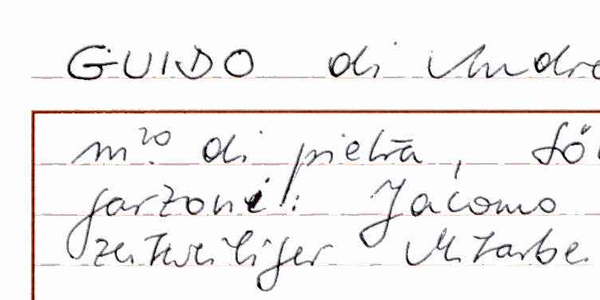 GUIDO di Andre
m.ro di pietra, Sö
garzone!: Jacomo
zeitweiliger Mitarbe